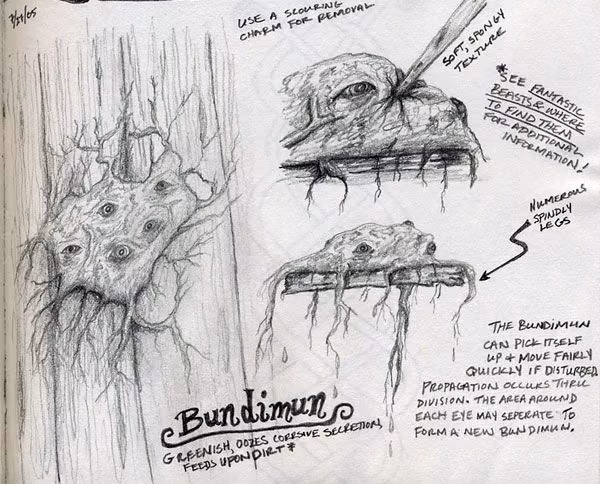 7/28/05
USE A SCOURING
CHARM FOR REMOVAL
SOFT, SPONGY
TEXTURE
*SEE FANTASTIC
BEASTS & WHERE
TO FIND THEM
FOR ADDITIONAL
INFORMATION!
NUMEROUS
SPINDLY
LEGS
THE BUNDIMUN
CAN PICK ITSELF
UP + MOVE FAIRLY
QUICKLY IF DISTURBED
PROPAGATION OCCURS THRU
DIVISION. THE AREA AROUND
EACH EYE MAY SEPERATE TO
FORM A NEW BUNDIMUN.
Bundimun
GREENISH, OOZES CORRSIVE SECRETION,
FEEDS UPON DIRT*